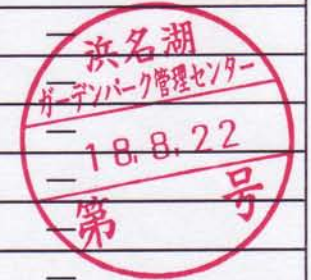 浜名湖
ガーデンパーク管理センター
18.8.22
第 号